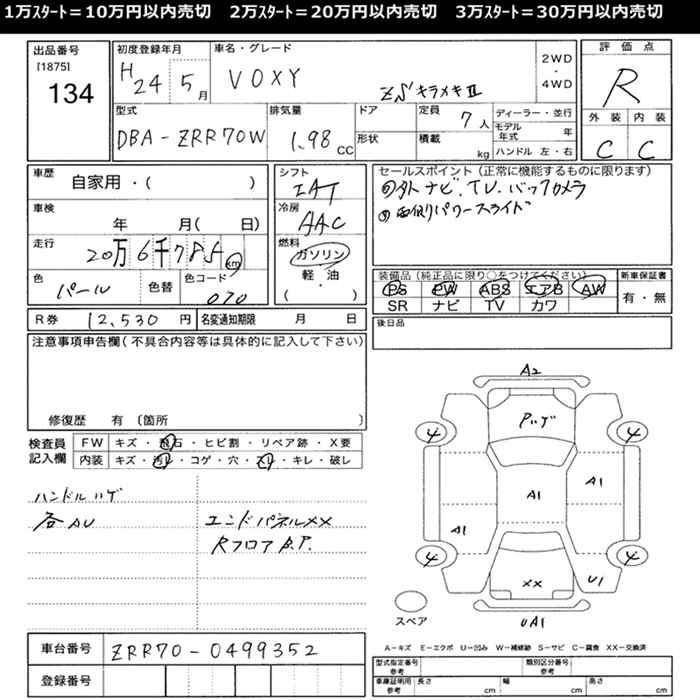 1万スタート＝10万円以内売切　2万スタート＝20万円以内売切　3万スタート＝30万円以内売切
出品番号
[1875]
134
初度登録年月
H24 5月
車名・グレード
VOXY ZS キラメキⅡ
2WD
・
4WD
評価点
R
外装 内装
C C
型式
DBA-ZRR70W
排気量
1.98 CC
ドア
形状
定員
7人
積載
kg
ディーラー・並行
モデル年式 年
ハンドル 左・右
車歴
自家用・( )
車検
年 月( 日)
走行
20万6千785km
色
パール
色替
色コード
070
シフト
IAT
冷房
AAC
燃料
ガソリン
軽・油
( )
セールスポイント（正常に機能するものに限ります）
①外ナビ.TV.バックカメラ
②両側パワースライド
装備品（純正品に限り○をつけてください）
PS PW ABS エアB AW
SR ナビ TV カワ
新車保証書
有・無
R券 12,530円
名変通知期限 月 日
後日品
注意事項申告欄(不具合内容等は具体的に記入して下さい)
修復歴 有〔箇所 〕
検査員
記入欄
FW キズ・飛石・ヒビ割・リペア跡・X要
内装 キズ・汚レ・コゲ・穴・スレ・キレ・破レ
ハンドルハゲ
各AU
エンドパネルXX
Rフロア B.P.
A2
Pハゲ
4 4
A1 A1
A1
4 4
XX U1
UA1
スペア
車台番号 ZRR70-0499352
登録番号
A－キズ E－エクボ U－凹み W－補修跡 S－サビ C－腐食 XX－交換済
型式指定番号
参考
類別区分番号
参考
車庫証明用
参考
長さ cm 幅 cm 高さ cm